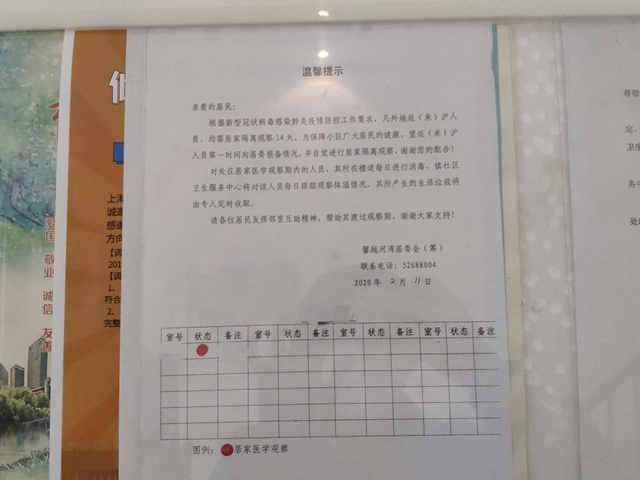 温馨提示
亲爱的居民:
根据新型冠状病毒感染肺炎疫情防控工作要求,凡外地返(来)沪人
员,均需居家隔离观察14天,为保障小区广大居民的健康,望返(来)沪
人员第一时间向居委报备情况,并自觉进行居家隔离观察,谢谢您的配合!
对处在居家医学观察期内的人员,其所在楼道每日进行消毒,镇社区
卫生服务中心将对该人员每日跟踪观察体温情况,其所产生的生活垃圾将
由专人定时收取。
请各位居民发挥邻里互助精神,帮助其渡过观察期,谢谢大家支持!
馨越河湾居委会(筹)
联系电话:52688004
2020年2月11日
室号 状态 备注 室号 状态 备注 室号 状态 备注 室号 状态 备注
图例: 居家医学观察
上海
诚邀
感谢
方向
【调
201
【调
1、
符合
2、
完整
爱国 敬业 诚信 友善
定、
卫生
务中
处